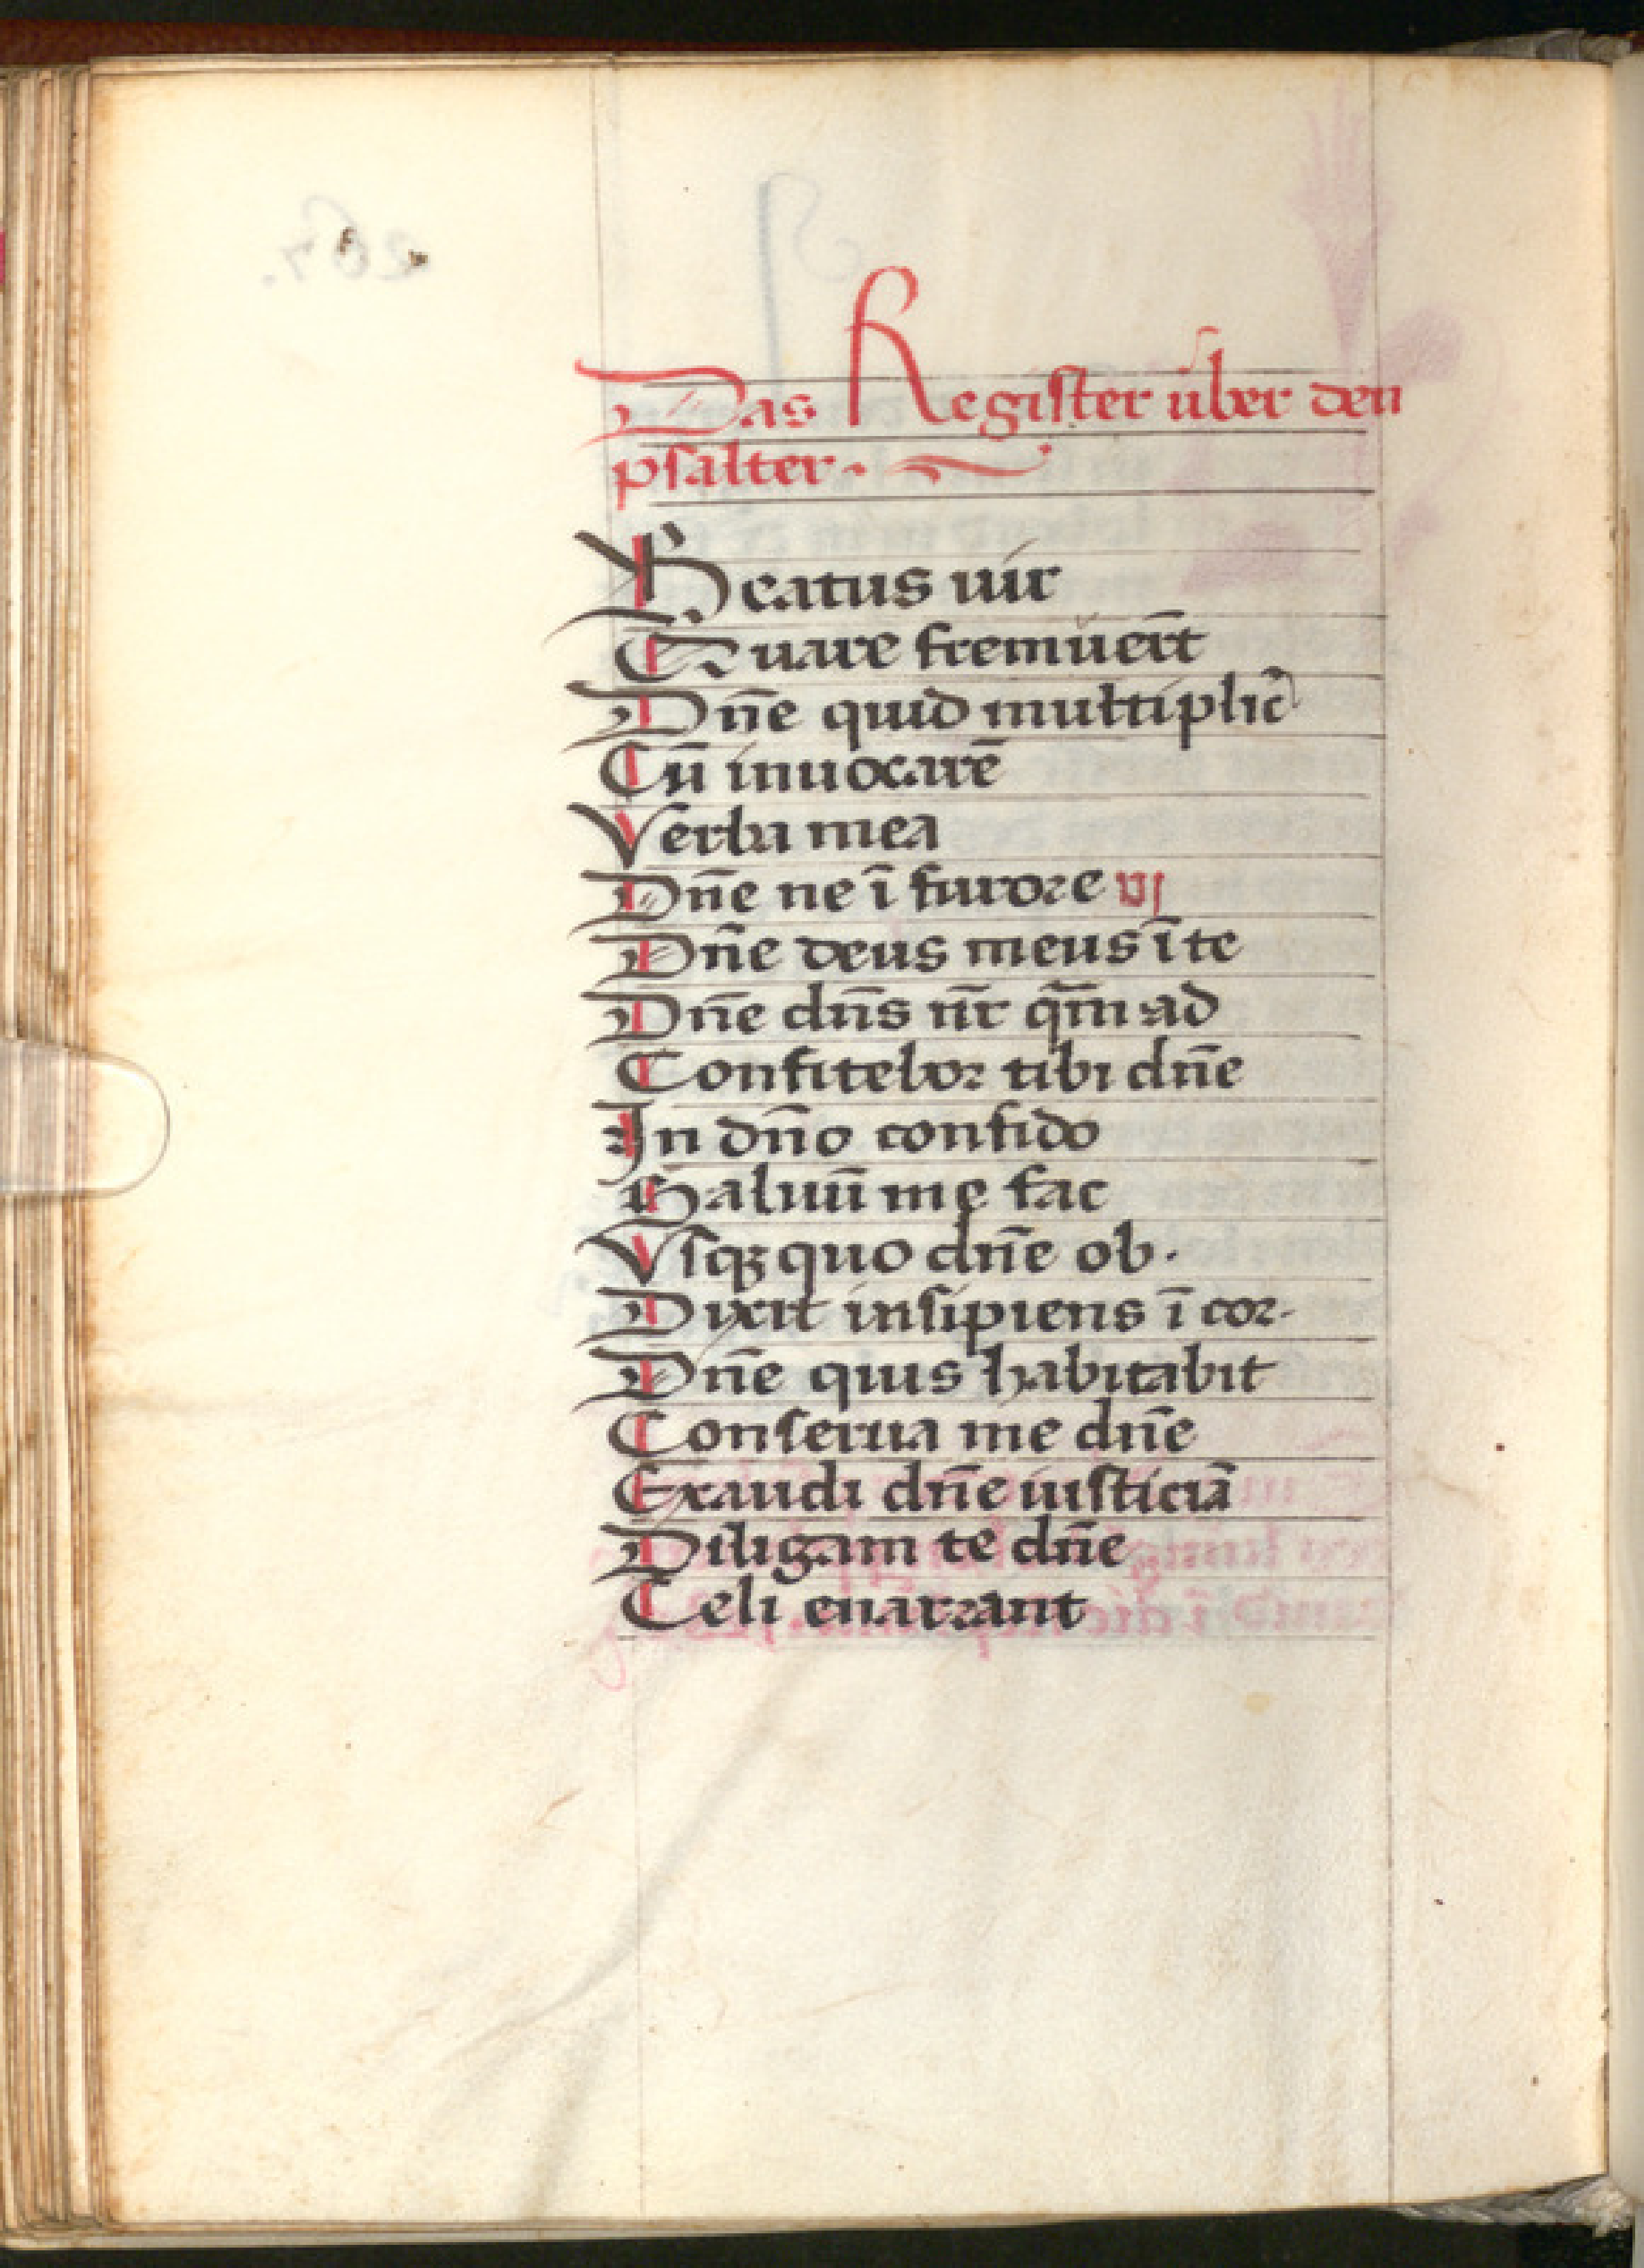 Das Register über den
psalter.
Beatus uir
Quare fremüer̄t
Dn̄e quid multiplic̄
Cū inuocarē
Verba mea
Dn̄e ne ī furore vj
Dn̄e deus meus ī te
Dn̄e dn̄s nr̄ qm̄ ad
Confitebor tibi dn̄e
In dn̄o confido
Saluū me fac
Vsqꝫ quo dn̄e ob.
Dixit insipiens ī cor.
Dn̄e quis habitabit
Conserua me dn̄e
Exaudi dn̄e iusticiā
Diligam te dn̄e
Celi enarrant